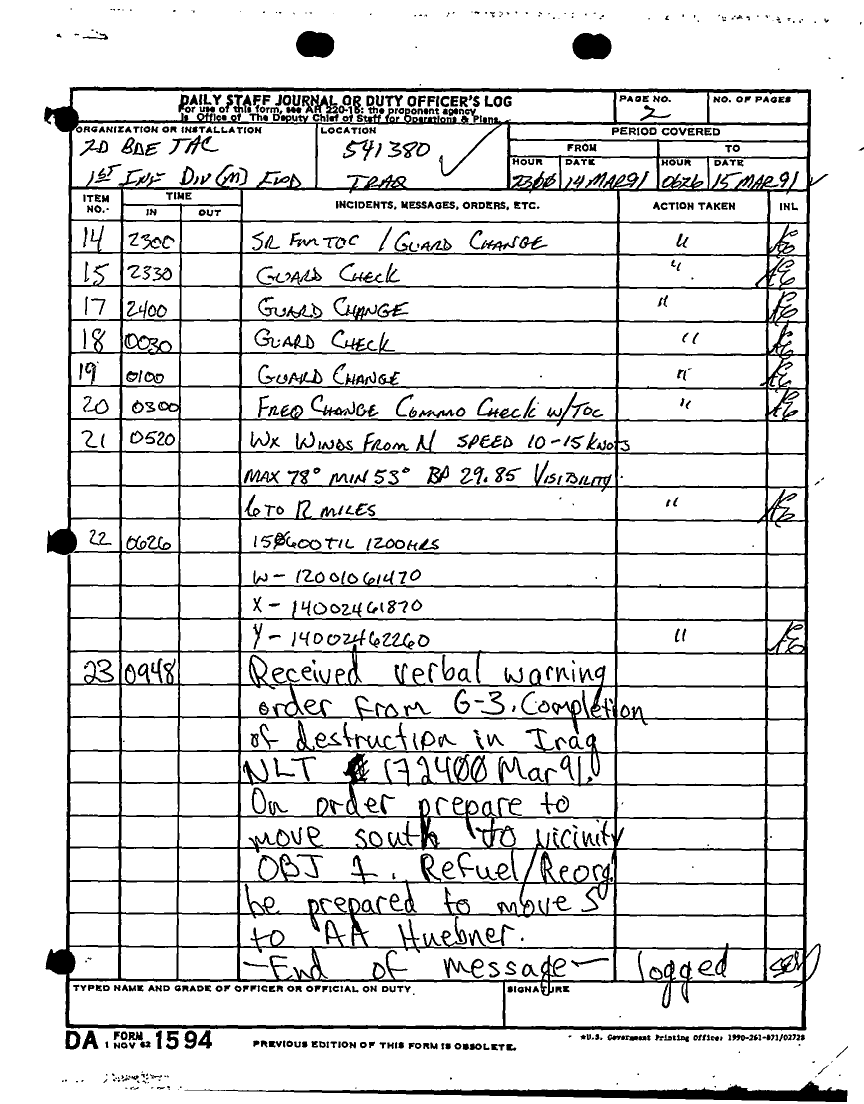 DAILY STAFF JOURNAL OR DUTY OFFICER'S LOG
For use of this form, see AR 220-15; the proponent agency
is Office of The Deputy Chief of Staff for Operations & Plans.
PAGE NO.
2
NO. OF PAGES
ORGANIZATION OR INSTALLATION
2D BDE TAC
1ST INF DIV (M) FWD
LOCATION
541380
IRAQ
PERIOD COVERED
FROM
TO
HOUR
DATE
HOUR
DATE
2300
14 MAR 91
0626
15 MAR 91
ITEM NO.
TIME
IN
OUT
INCIDENTS, MESSAGES, ORDERS, ETC.
ACTION TAKEN
INL
14 2300 SR FM TOC / GUARD CHANGE "
15 2330 GUARD CHECK "
17 2400 GUARD CHANGE "
18 0030 GUARD CHECK "
19 0100 GUARD CHANGE "
20 0300 FREQ CHANGE COMMO CHECK w/TOC "
21 0520 WX WINDS FROM N SPEED 10-15 KNOTS
MAX 78° MIN 53° BP 29.85 VISIBILITY
6 TO 12 MILES "
22 0626 150600 TIL 1200HRS
W - 12001061470
X - 14002461870
Y - 14002462260 "
23 0948 Received verbal warning
order from G-3. Completion
of destruction in Iraq
NLT 172400 Mar 91.
On order prepare to
move south to vicinity
OBJ 1. Refuel/Reorg
be prepared to move S
to AA Huebner.
-End of message- logged
TYPED NAME AND GRADE OF OFFICER OR OFFICIAL ON DUTY
SIGNATURE
DA FORM 1594
1 NOV 62
PREVIOUS EDITION OF THIS FORM IS OBSOLETE.
*U.S. Government Printing Office: 1990-261-871/02728